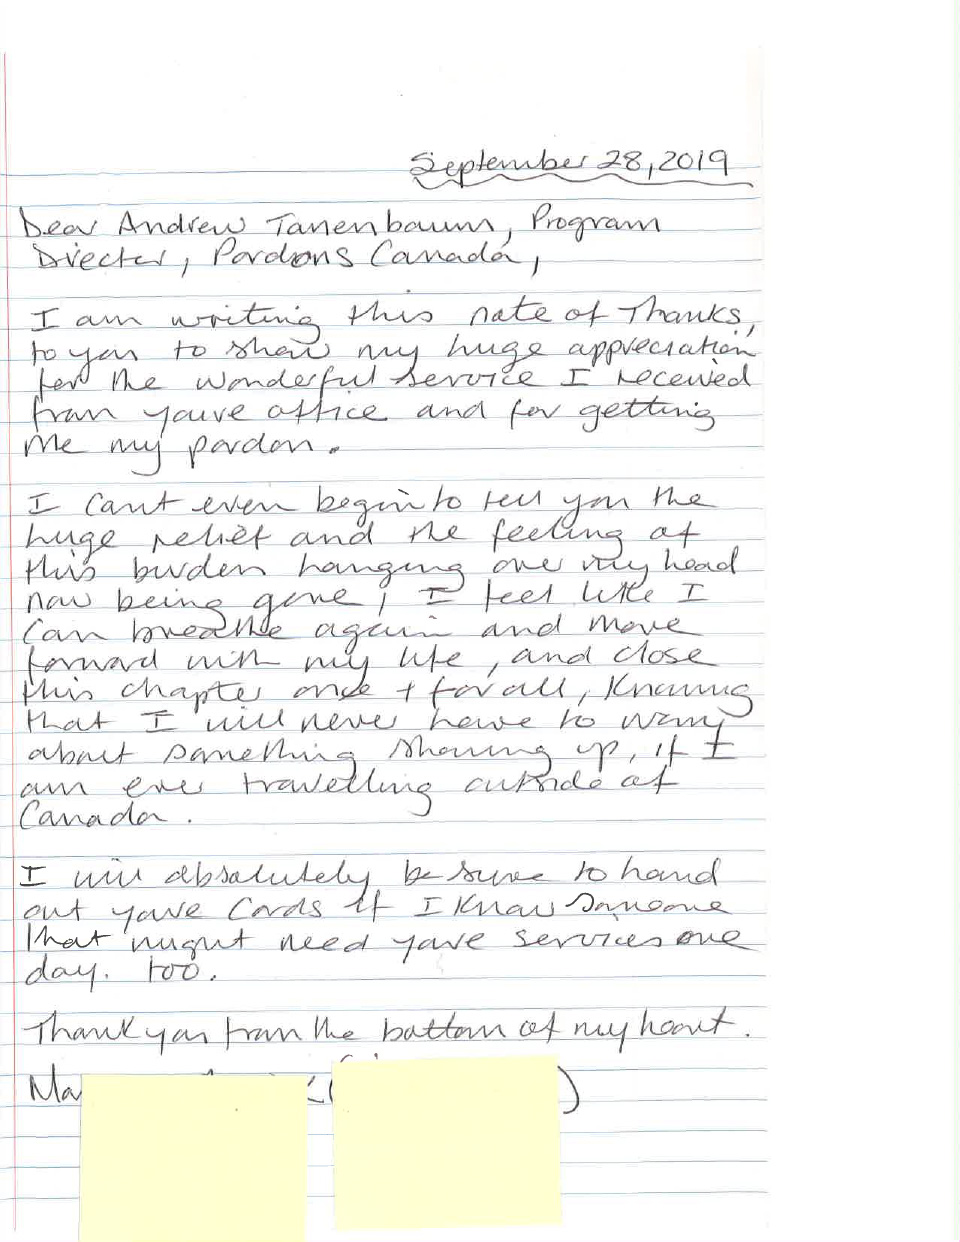 September 28, 2019
Dear Andrew Tanenbaum, Program
Director, Pardons Canada,
I am writing this note of Thanks,
to you to show my huge appreciation
for the wonderful service I received
from youre office and for getting
me my pardon.
I cant even begin to tell you the
huge relief and the feeling of
this burden hanging over my head
now being gone, I feel like I
can breathe again and move
forward with my life, and close
this chapter once + for all, knowing
that I will never have to worry
about something showing up, if I
am ever travelling outside of
Canada.
I will absolutely be sure to hand
out youre cards if I know someone
that might need youre services one
day. too.
Thank you from the bottom of my heart.
Ma ( )